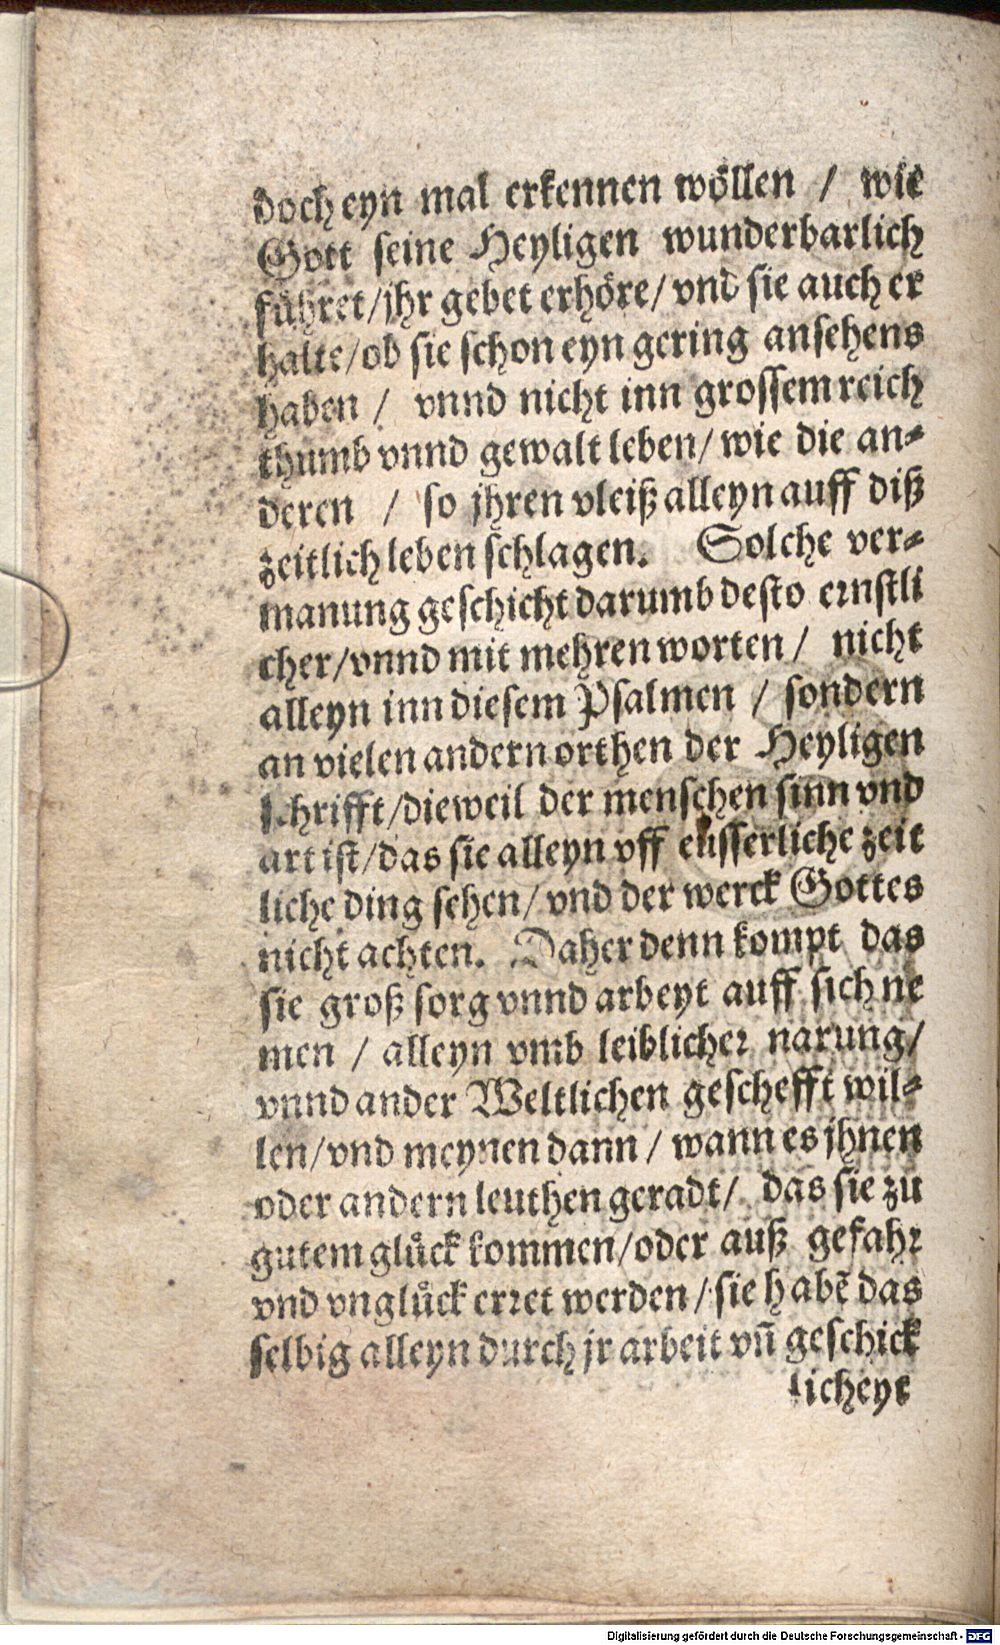 doch eyn mal erkennen wöllen / wie
Gott seine Heyligen wunderbarlich
führet/jhr gebet erhöre/vnd sie auch er
halte/ob sie schon eyn gering ansehens
haben / vnnd nicht inn grossem reich
thumb vnnd gewalt leben/wie die an⸗
deren / so jhren vleiß alleyn auff diß
zeitlich leben schlagen. Solche ver⸗
manung geschicht darumb desto ernstli
cher/vnnd mit mehren worten / nicht
alleyn inn diesem Psalmen / sondern
an vielen andern orthen der Heyligen
schrifft/dieweil der menschen sinn vnd
art ist/das sie alleyn vff eüsserliche zeit
liche ding sehen/vnd der werck Gottes
nicht achten. Daher denn kompt das
sie groß sorg vnnd arbeyt auff sich ne
men / alleyn vmb leiblicher narung/
vnnd ander Weltlichen geschefft wil⸗
len/vnd meynen dann / wann es jhnen
oder andern leuthen geradt/ das sie zu
gutem glück kommen/oder auß gefahr
vnd vnglück erret werden/sie habẽ das
selbig alleyn durch jr arbeit vñ geschick
licheyt
Digitalisierung gefördert durch die Deutsche Forschungsgemeinschaft - DFG